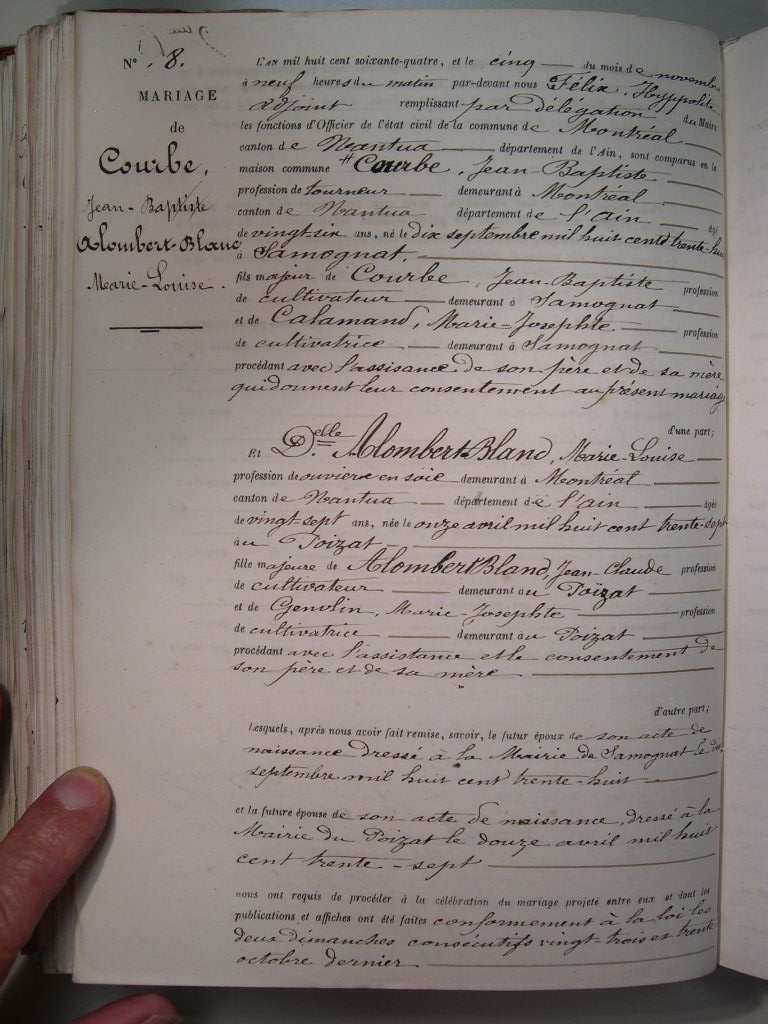 N° 8.
MARIAGE
de
Courbe,
Jean-Baptiste
Alombert-Blanc
Marie-Louise.
L'AN mil huit cent soixante-quatre, et le cinq du mois de novembre
à neuf heures du matin par-devant nous Félix, Hyppolite
adjoint remplissant par délégation du Maire
les fonctions d'Officier de l'état civil de la commune de Montréal
canton de Nantua département de l'Ain, sont comparus en la
maison commune Courbe, Jean-Baptiste
profession de tourneur demeurant à Montréal
canton de Nantua département de l'ain âgé
de vingt-six ans, né le dix septembre mil huit cent trente-huit
à Samognat,
fils majeur de Courbe, Jean-Baptiste profession
de cultivateur demeurant à Samognat
et de Calamand, Marie-Josephte profession
de cultivatrice demeurant à Samognat
procédant avec l'assisance de son père et de sa mère
qui donnent leur consentement au présent mariage
d'une part;
Et D.elle Alombert-Bland, Marie-Louise
profession de ouvière en soie demeurant à Montréal
canton de Nantua département de l'ain âgée
de vingt-sept ans, née le onze avril mil huit cent trente-sept
au Poizat
fille majeure de Alombert Bland, Jean-Claude profession
de cultivateur demeurant au Poïzat
et de Genolin, Marie-Josephte profession
de cultivatrice demeurant au Poizat
procédant avec l'assistance et le consentement de
son père et de sa mère
d'autre part;
Lesquels, après nous avoir fait remise, savoir, le futur époux de son acte de
naissance dressé à la Mairie de Samognat le dix
septembre mil huit cent trente-huit
et la future épouse de son acte de naissance, dressé à la
Mairie du Poizat le douze avril mil huit
cent trente-sept
nous ont requis de procéder à la célébration du mariage projeté entre eux et dont les
publications et affiches ont été faites conformement à la loi les
deux dimanches consécutifs vingt-trois et trente
octobre dernier